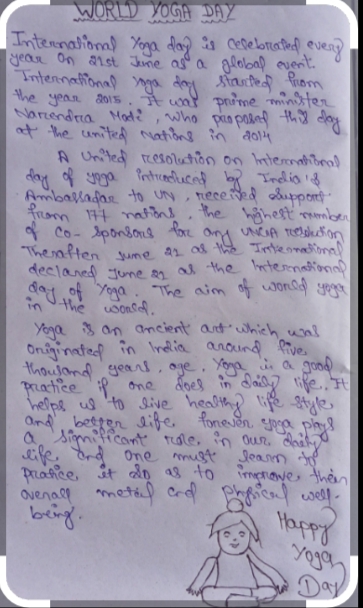 WORLD YOGA DAY
International Yoga day is celebrated every
year on 21st June as a global event.
International Yoga day started from
the year 2015. It was prime minister
Narendra Modi, who proposed this day
at the united Nations in 2014
A United resolution on International
day of yoga introduced by India's
Ambassador to UN, received support
from 177 nations, the highest number
of co-sponsors for any resolution
Therafter June 21 as the International
declared June 21 as the International
day of Yoga. The aim of world yoga
in the world.
Yoga is an ancient art which was
originated in India around five
thousand years, age. Yoga is a good
pratice if one does in daily life. It
helps us to live healthy life style
and better life forever yoga plays
a significant role, in our daily
life, and one must learn to
pratice, it so as to improve, their
overall and physical well-
being.
Happy
Yoga
Day